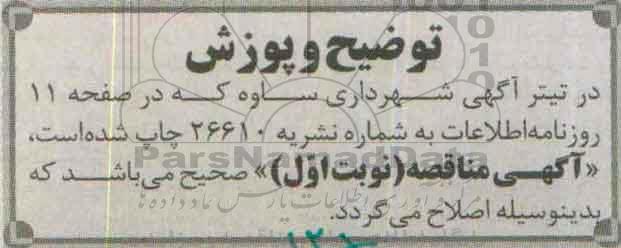 توضیح و پوزش
در تیتر آگهی شهرداری ساوه که در صفحه ۱۱
روزنامه‌اطلاعات به شماره نشریه ۲۶۶۱۰ چاپ شده‌است،
«آگهی مناقصه(نوبت اول)» صحیح می‌باشد که
بدینوسیله اصلاح می‌گردد.
ParsNamadData